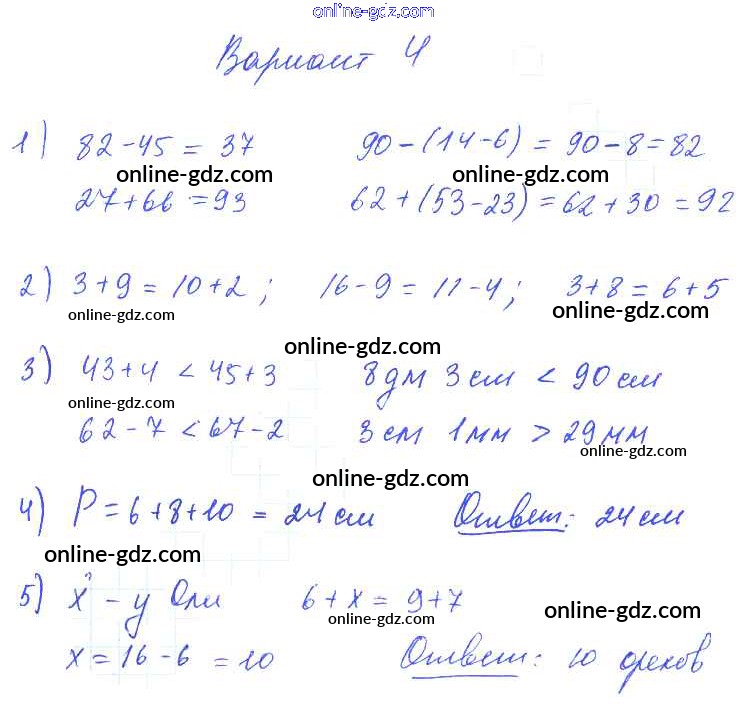 online-gdz.com
Вариант 4
1) 82-45 = 37 90-(14-6) = 90-8=82
online-gdz.com online-gdz.com
27+66 =93 62+(53-23)=62+30 =92
2) 3+9 = 10+2; 16-9 = 11-4; 3+8 = 6+5
online-gdz.com online-gdz.com
online-gdz.com
3) 43+4 < 45+3 8дм 3см < 90см
online-gdz.com
62-7 < 67-2 3см 1мм > 29мм
online-gdz.com
online-gdz.com
4) P = 6+8+10 = 24см Ответ: 24см
online-gdz.com
5) х - у Оли 6+х = 9+7
online-gdz.com online-gdz.com
х = 16-6 = 10 Ответ: 10 орехов